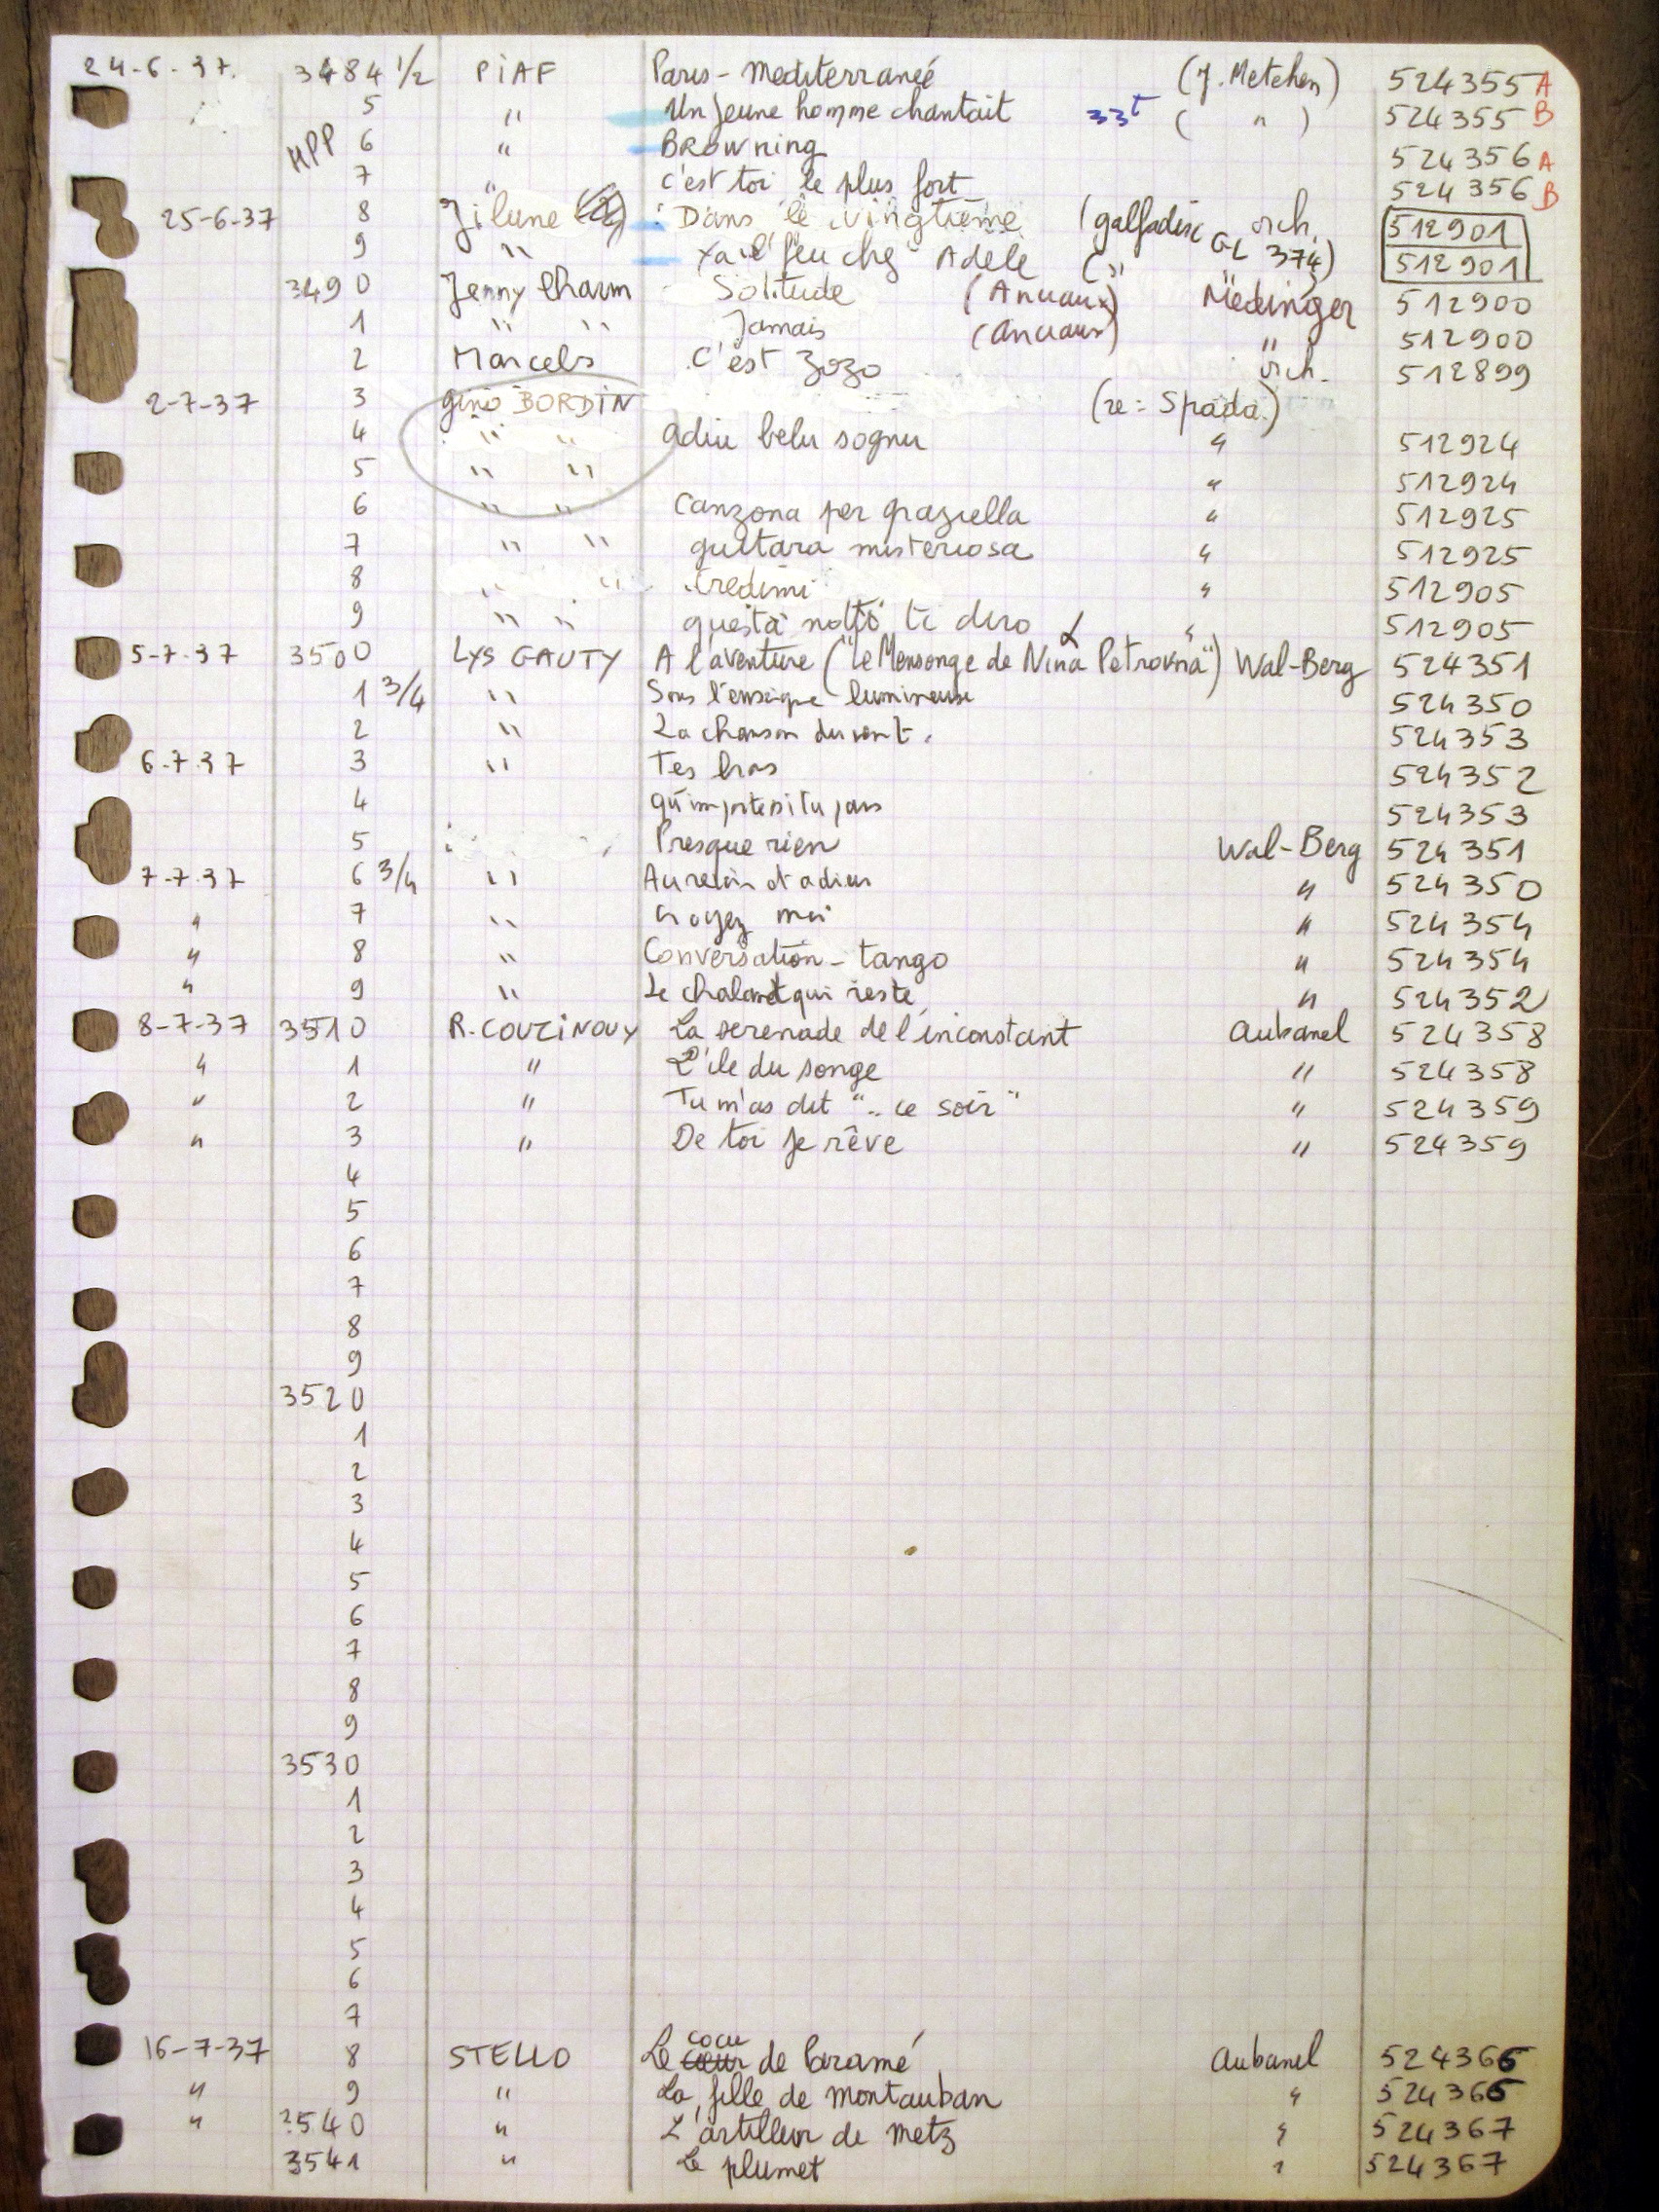 24-6-37. 3484 1/2 PiAF Paris-Mediterraneé (J. Metehen) 524355 A
5 " Un jeune homme chantait 33t ( " ) 524355 B
HPP 6 " BROWning 524356 A
7 " C'est toi le plus fort 524356 B
25-6-37 8 Jilune Dans le vingtième (galfadisc orch. 512901
9 " Ya l'feu chez Adele ( " GL 374) 512901
3490 Jenny Charm Solitude (Anuaux) Medinger 512900
1 " " Jamais (Anuaux) " 512900
2 Marcels C'est Zozo orch. 512899
2-7-37 3 gino BORDiN (re: Spada)
4 " " adiu belu sognu " 512924
5 " " " 512924
6 " " Canzona per graziella " 512925
7 " " guitara misteriosa " 512925
8 " " Credimi " 512905
9 " " questa notto ti diro " 512905
5-7-37 3500 LYS GAUTY A l'aventure ("Le Mensonge de Nina Petrovna") Wal-Berg 524351
1 3/4 " Sous l'enseigne lumineuse 524350
2 " La chanson du vent. 524353
6-7-37 3 " Tes bras 524352
4 qu'importe si tu pars 524353
5 Presque rien Wal-Berg 524351
7-7-37 6 3/4 " Au revoir et adieu " 524350
" 7 " Croyez moi " 524354
" 8 " Conversation-tango " 524354
" 9 " Le chaland qui reste " 524352
8-7-37 3510 R. COUZiNOUY La serenade de l'inconstant Aubanel 524358
" 1 " L'ile du songe " 524358
" 2 " Tu m'as dit ".. ce soir" " 524359
" 3 " De toi je rêve " 524359
4
5
6
7
8
9
3520
1
2
3
4
5
6
7
8
9
3530
1
2
3
4
5
6
7
16-7-37 8 STELLO Le cocu de Caramé Aubanel 524366
" 9 " La fille de montauban " 524366
" 3540 " L'artilleur de metz " 524367
3541 " Le plumet " 524367